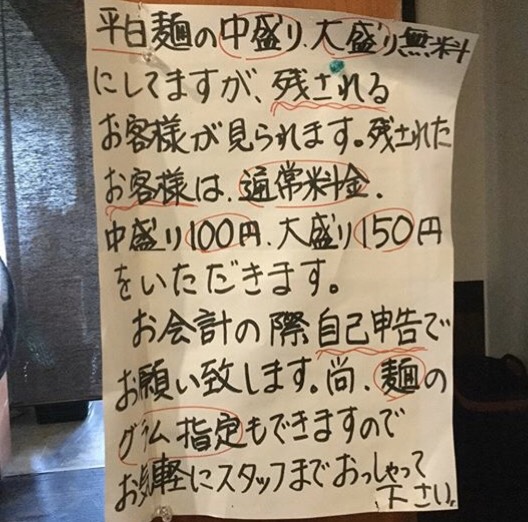 平日麺の中盛り、大盛り無料
にしてますが、残される
お客様が見られます。残された
お客様は、通常料金、
中盛り100円、大盛り150円
をいただきます。
お会計の際自己申告で
お願い致します。尚、麺の
グラム指定もできますので
お気軽にスタッフまでおっしゃって
下さい。